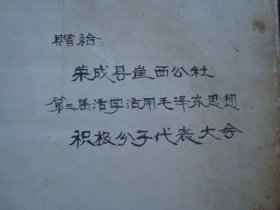 赠给:
荣成县崖西公社
第三届活学活用毛泽东思想
积极分子代表大会